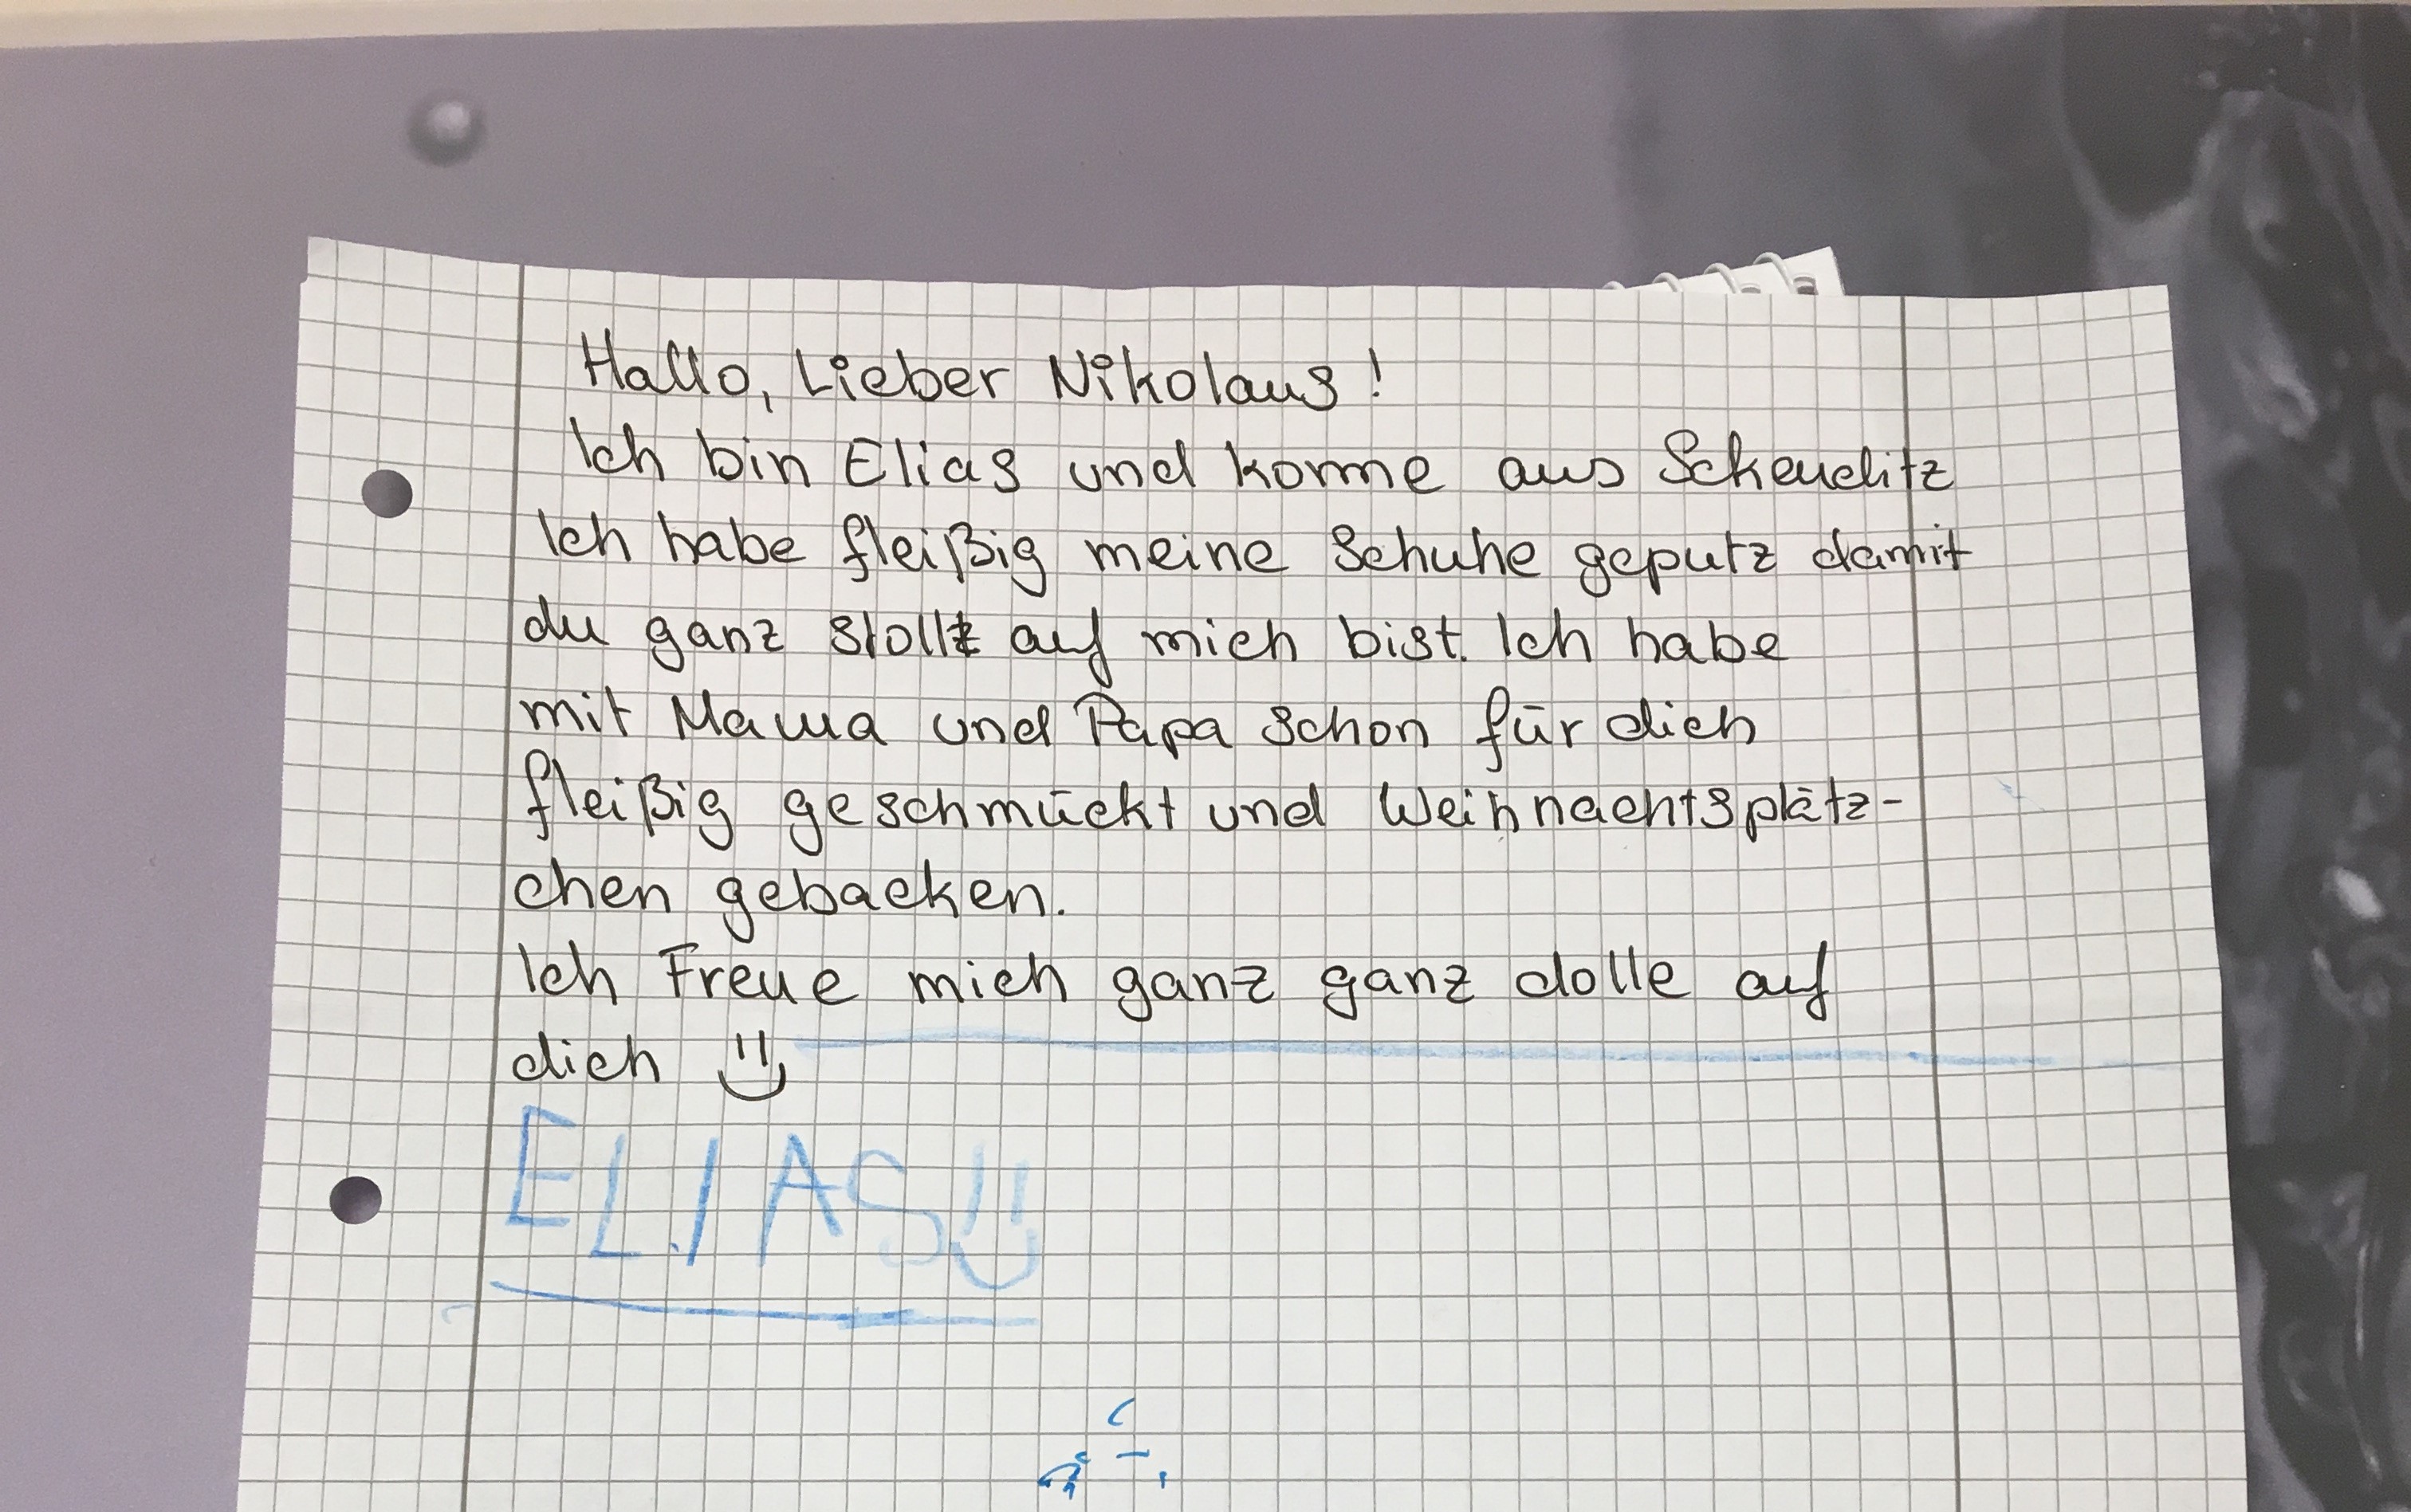 Hallo, Lieber Nikolaus!
Ich bin Elias und komme aus Scheuditz
Ich habe fleißig meine Schuhe geputz damit
du ganz stollz auf mich bist. Ich habe
mit Mama und Papa schon für dich
fleißig geschmückt und Weihnachtsplätz-
chen gebacken.
Ich Freue mich ganz ganz dolle auf
dich
ELIAS